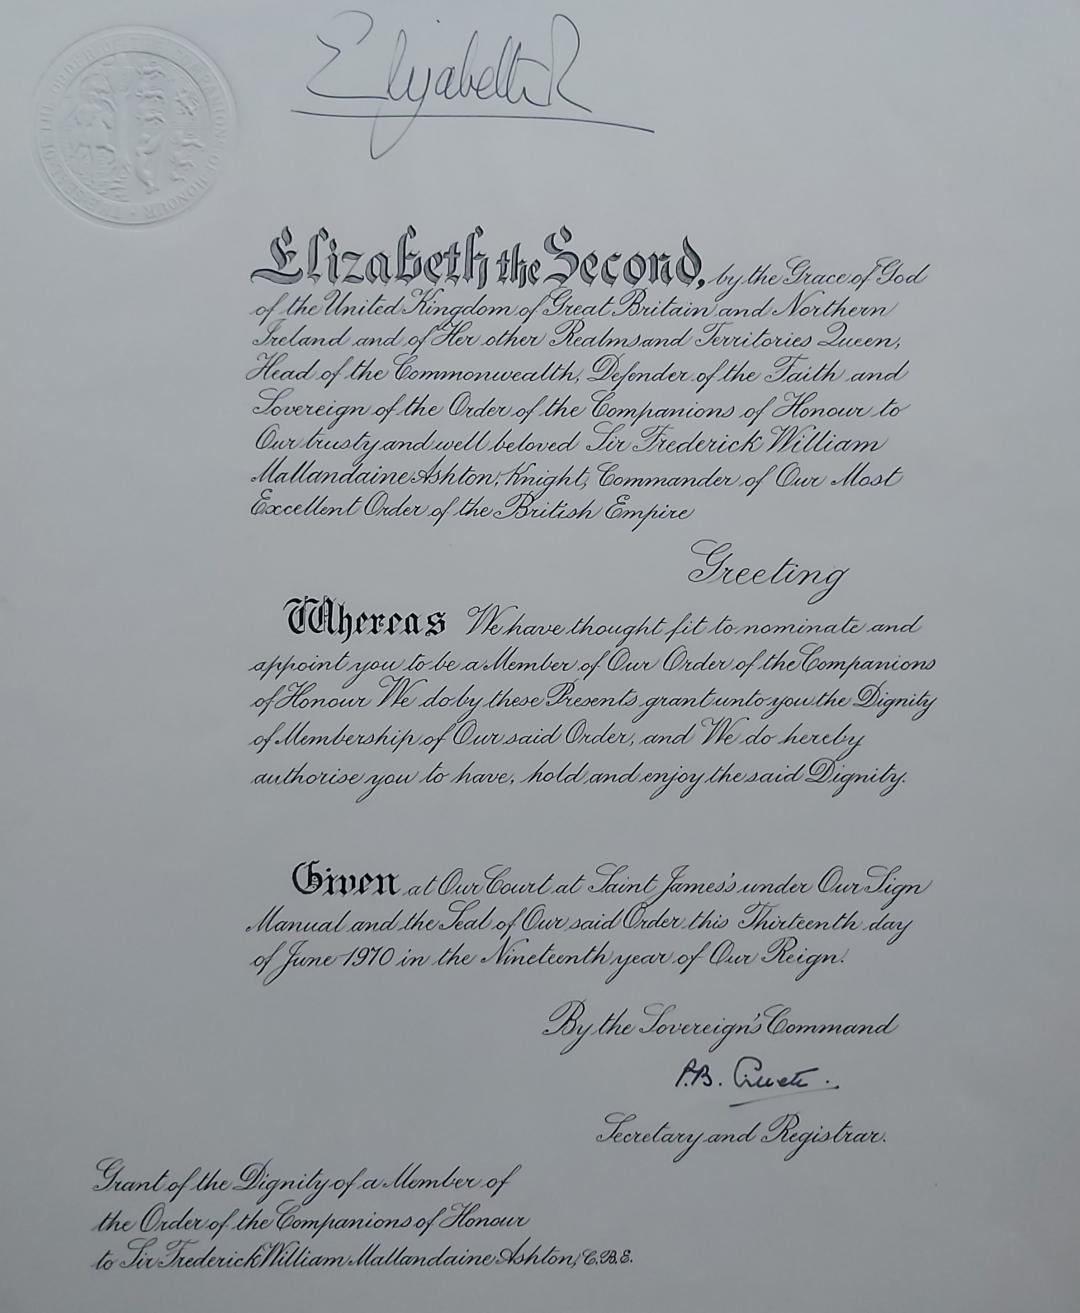 Elizabeth R
THE SEAL OF THE ORDER OF THE COMPANIONS OF HONOUR
Elizabeth the Second, by the Grace of God
of the United Kingdom of Great Britain and Northern
Ireland and of Her other Realms and Territories Queen,
Head of the Commonwealth, Defender of the Faith and
Sovereign of the Order of the Companions of Honour to
Our trusty and well beloved Sir Frederick William
Mallandaine Ashton, Knight, Commander of Our Most
Excellent Order of the British Empire
Greeting
Whereas We have thought fit to nominate and
appoint you to be a Member of Our Order of the Companions
of Honour We do by these Presents grant unto you the Dignity
of Membership of Our said Order, and We do hereby
authorise you to have, hold and enjoy the said Dignity.
Given at Our Court at Saint James's under Our Sign
Manual and the Seal of Our said Order this Thirteenth day
of June 1970 in the Nineteenth year of Our Reign.
By the Sovereign's Command
P.B.
Secretary and Registrar.
Grant of the Dignity of a Member of
the Order of the Companions of Honour
to Sir Frederick William Mallandaine Ashton, C.B.E.